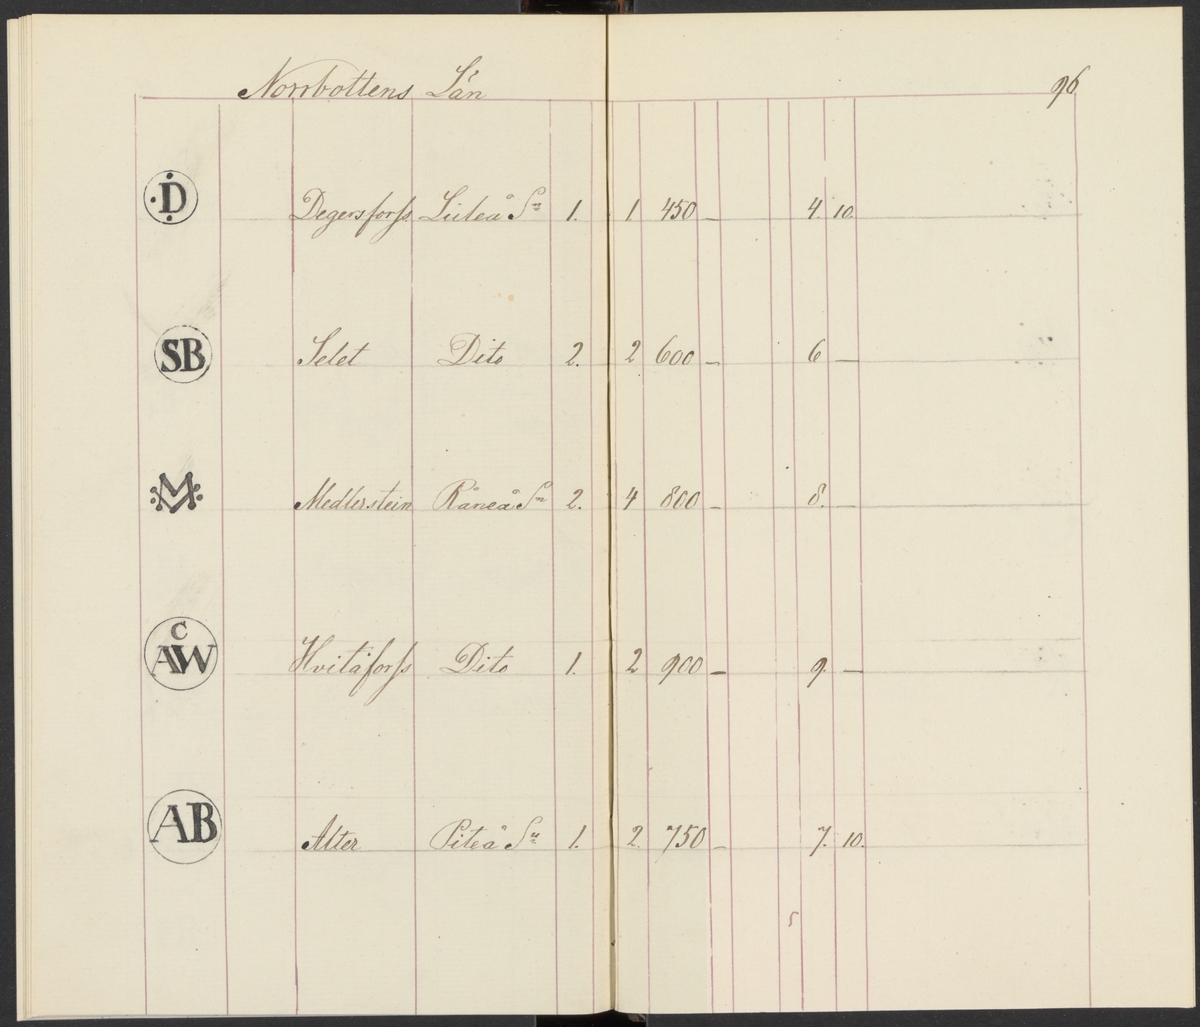 Norrbottens Län 96
D Degersforss Luleå Sn 1. 1 450 – 4. 10.
SB Selet Dito 2. 2 600 – 6 –
M Medlerstein Råneå Sn 2. 4 800 – 8. –
C
AW Hvitåforss Dito 1. 2 900 – 9. –
AB Alter Piteå Sn 1. 2. 750 – 7. 10.